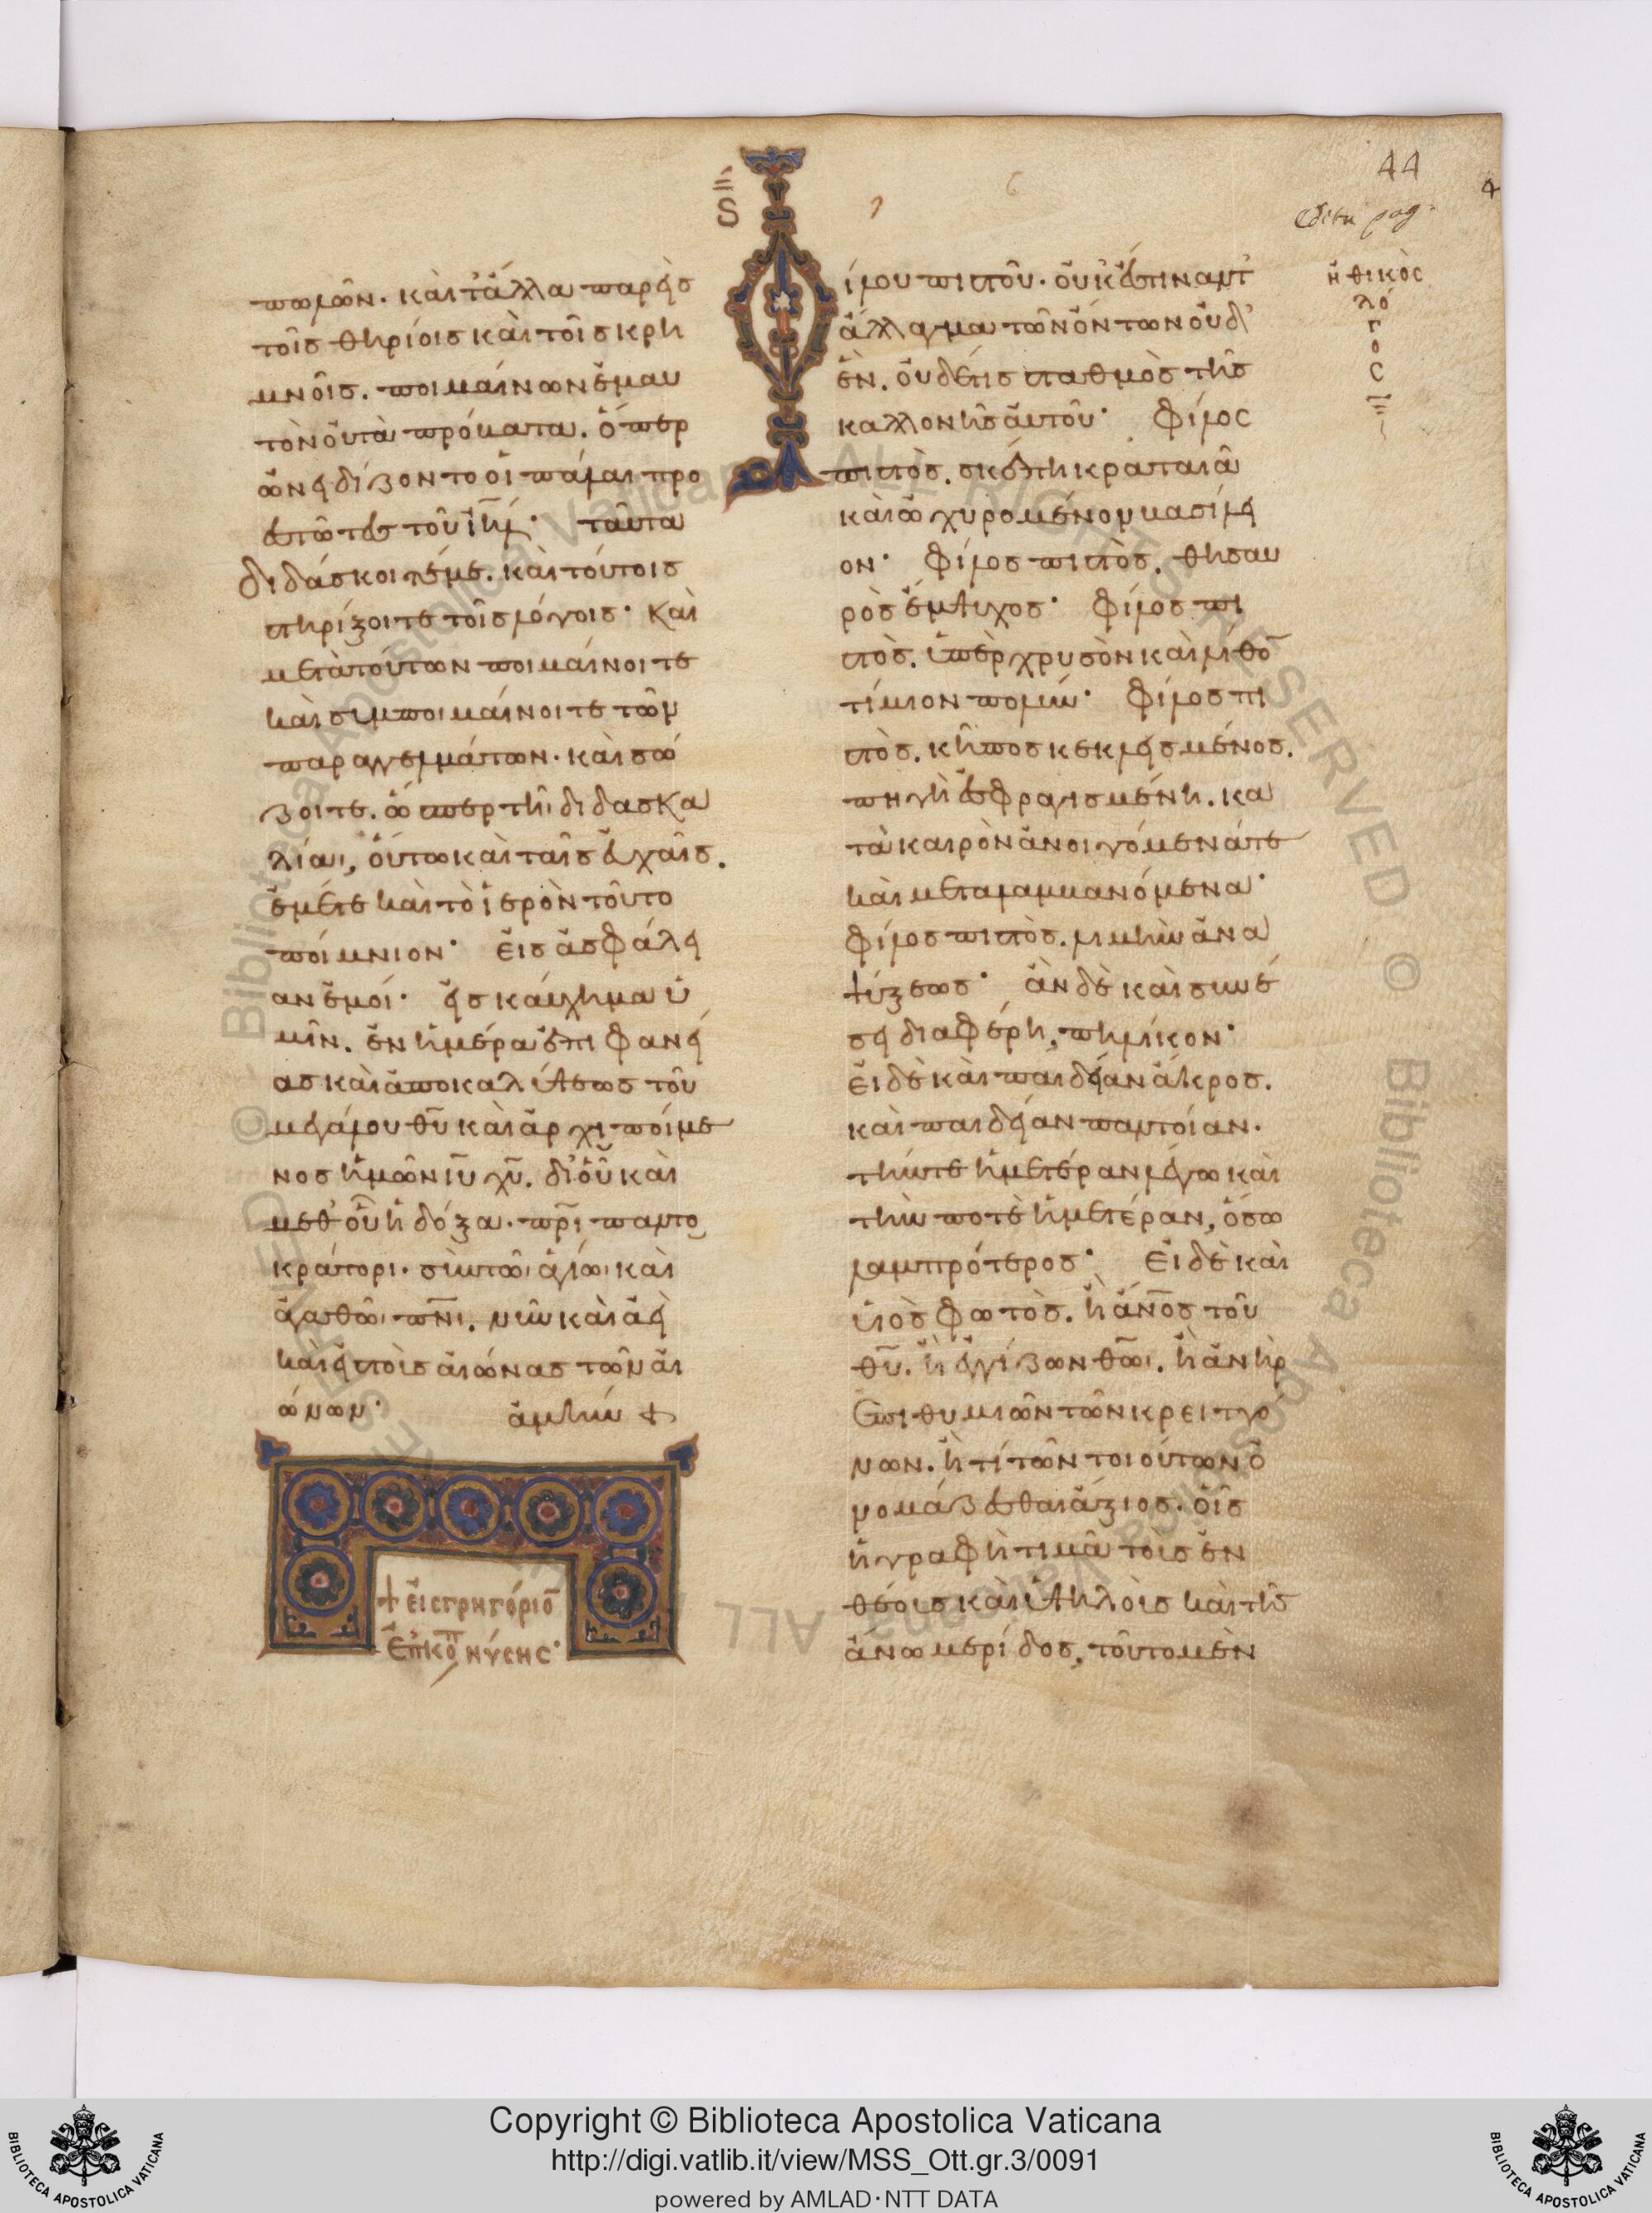 πωλῶν· καὶ τἄλλα παρεὶς
τοῖς θηρίοις καὶ τοῖς κρη
μνοῖς. ποιμαίνων ἐμαυ
τὸν οὐ τὰ πρόβατα. ὅπερ
ὠνείδιζον τὸ οἱ πάλαι προ
εστῶτες τοῦ ἰηλ· ταῦτα
διδάσκοιτέ με. καὶ τούτοις
στηρίζοιτε τοῖς λόγοις· καὶ
μετὰ τούτων ποιμαίνοιτε
καὶ συμποιμαίνοιτε τῶν
παραγγελμάτων· καὶ σώ
ζοιτε. ὥσπερ τῆι διδασκα
λίαι, οὕτω καὶ ταῖς εὐχαῖς.
ἐμέ τε καὶ τὸ ἱερὸν τοῦτο
ποίμνιον· εἰς ἀσφάλει
αν ἐμοί· εἰς καύχημα ὑ
μῖν. ἐν ἡμέρα ἐπιφανεί
ας καὶ ἀποκαλύψεως τοῦ
μεγάλου θῦ καὶ ἀρχιποίμε
νος ἡμῶν ιῦ χῦ. δι' οὗ καὶ
μεθ' οὗ ἡ δόξα· πρι παντο
κράτορι· σὺν τῶι ἁγίωι καὶ
ἀγαθῶι πνι. νῦν καὶ ἀεὶ
καὶ εἰς τοὺς αἰῶνας τῶν αἰ
ώνων· ἀμήν +
+ εἰς γρηγόριο
ἐπίσκοπ νύσης·
ς
Φίλου πιστοῦ· οὐκ ἔστιν ἀντ
άλλαγμα τῶν ὄντων οὐδ'
ἐν. οὐδέ τις σταθμὸς τῆς
καλλονῆς αὐτοῦ· φίλος
πιστὸς. σκέπη κραταιὰ
καὶ ὠχυρομένον βασίλει
ον· φίλος πιστὸς. θησαυ
ρὸς ἔμψυχος· φίλος πι
στὸς. ὑπὲρ χρυσὸν καὶ λίθο
τίμιον πολύν· φίλος πι
στὸς. κῆπος κεκλεισμένος.
πηγὴ ἐσφραγισμένη. κα
τὰ καιρὸν ἀνοιγόμενά τε
καὶ μεταλαμβανόμενα·
φίλος πιστὸς. λιμὴν ἀνα
ψύξεως· ἂν δὲ καὶ συνέ
σει διαφέρη, πηλίκον·
εἰ δὲ καὶ παιδείαν ἄκρος.
καὶ παιδείαν παντοίαν.
τήν τε ἡμετέραν λέγω καὶ
τήν ποτε ἡμετέραν, ὅσω
λαμπρότερος· εἰ δὲ καὶ
υἱὸς φωτὸς. ἢ ἄνος τοῦ
θῦ. ἢ ἐγγίζων θῶι. ἢ ἀνὴρ
ἐπιθυμιῶν τῶν κρειττό
νων. ἤ τι τῶν τοιούτων ὀ
νομάζεσθαι ἄξιος. οἷς
ἡ γραφὴ τιμᾶ τοὺς ἐν
θέους καὶ ὑψηλοὺς καὶ τῆς
ἄνω μερίδος, τοῦτο μὲν
ἠθικὸς
λό
γ
ο
ς
44
Copyright © Biblioteca Apostolica Vaticana
http://digi.vatlib.it/view/MSS_Ott.gr.3/0091
powered by AMLAD·NTT DATA
BIBLIOTECA APOSTOLICA VATICANA
BIBLIOTECA APOSTOLICA VATICANA